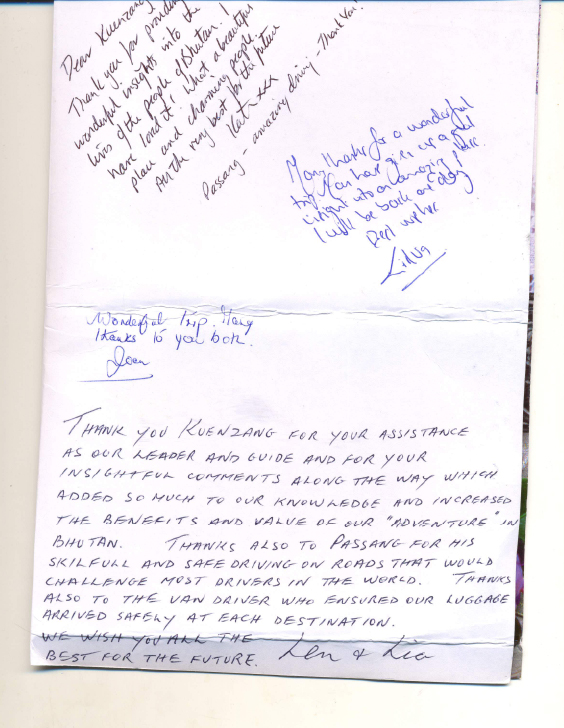 Dear Kuenzang
Thank you for providing
wonderful insights into the
lives of the people of Bhutan. I
have loved it! What a beautiful
place and charming people.
All the very best for the future
Kat xxx
Passang - amazing driving - Thank You!
Many thanks for a wonderful
trip. You have given us a great
insight into an amazing place.
I will be back one day
Best wishes
Wonderful trip. Many
thanks to you both.
Joan
THANK YOU KUENZANG FOR YOUR ASSISTANCE
AS OUR LEADER AND GUIDE AND FOR YOUR
INSIGHTFUL COMMENTS ALONG THE WAY WHICH
ADDED SO MUCH TO OUR KNOWLEDGE AND INCREASED
THE BENEFITS AND VALUE OF OUR "ADVENTURE" IN
BHUTAN. THANKS ALSO TO PASSANG FOR HIS
SKILFULL AND SAFE DRIVING ON ROADS THAT WOULD
CHALLENGE MOST DRIVERS IN THE WORLD. THANKS
ALSO TO THE VAN DRIVER WHO ENSURED OUR LUGGAGE
ARRIVED SAFELY AT EACH DESTINATION.
WE WISH YOU ALL THE
BEST FOR THE FUTURE. Len & Lia